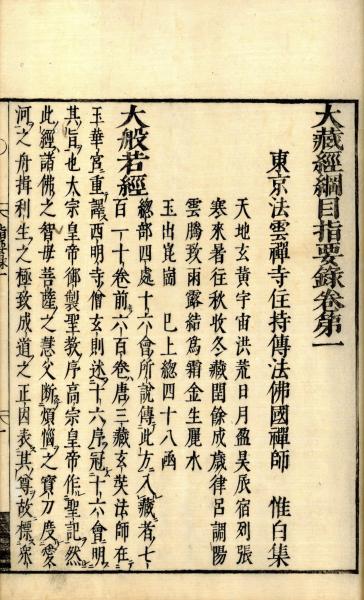 大藏經綱目指要錄卷第一
東京法雲禪寺住持傳法佛國禪師　惟白集
天地玄黃宇宙洪荒日月盈昃辰宿列張
寒來暑往秋收冬藏閏餘成歲律呂調陽
雲騰致雨露結爲霜金生麗水
玉出崑崗　巳上總四十八函
大般若經
總部四處十六會所說傳此方入藏者七
百一十卷前六百卷唐三藏玄奘法師在
玉華宮重譯西明寺僧玄則述十六序冠十六會明
其旨也太宗皇帝御製聖教序高宗皇帝作聖記然
此經諸佛之智母菩薩之慧父斷煩惱之寶刀度愛
河之舟楫利生之極致成道之正因表其尊故標眾